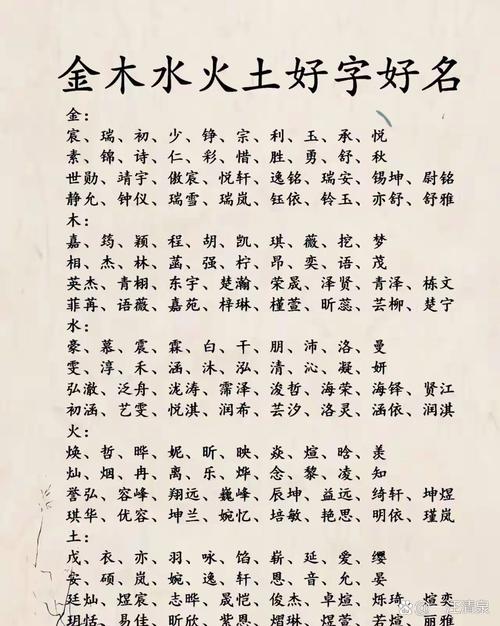 金木水火土好字好名
金：
宸、瑞、初、少、铮、宗、利、玉、承、悦
素、锦、诗、仁、彩、惜、胜、勇、舒、秋
世勋、靖宇、傲宸、悦轩、逸铭、瑞安、锡坤、尉铭
静允、钟仪、瑞雪、瑞岚、钰依、铃玉、亦舒、舒雅
木：
嘉、筠、颖、程、胡、凯、琪、薇、挖、梦
相、杰、林、菡、强、柠、昂、奕、语、茂
英杰、青栩、东宇、楚瀚、荣晟、泽贤、青泽、栋文
菲苒、语薇、嘉苑、梓琳、槿萱、昕蕊、芸柳、楚宁
水：
豪、慕、震、霖、白、干、朋、沛、洛、曼
雯、淳、禾、涵、沐、泓、清、沁、凝、妍
弘澈、泛舟、泷涛、霈泽、浚哲、海荣、海铎、贤江
初涵、艺雯、悦淇、润希、芸汐、洛灵、涵依、润淇
火：
焕、哲、晔、妮、昕、映、焱、煊、晗、羡
灿、烟、冉、离、乐、烨、念、黎、凌、知
誉弘、容峰、翔远、巍峰、辰坤、益远、绮轩、坤煜
琪华、优容、坤兰、婉忆、培敏、艳思、明依、瑾岚
土：
戊、衣、亦、羽、咏、馅、崭、延、爱、缨
安、硕、岚、婉、逸、轩、恩、音、允、晏
廷灿、煜宸、志晔、晟恺、俊杰、卓煊、烁琦、煊奕
玥恬、易佳、昕欣、紫恩、煜琳、萱容、若煊、丽雅
汪清泉